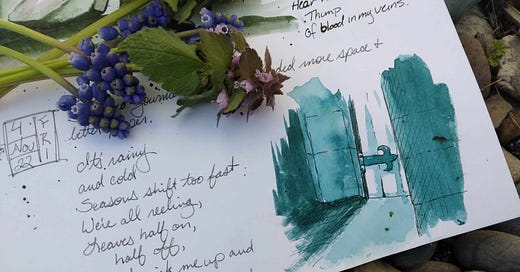 Hear
Thump
of blood in my veins.
ded more space &
journa
lette
4
Nov
22
F
R
I
It's rainy
and cold
Seasons shift too fast:
We're all reeling,
Leaves half on,
half off,
me up and